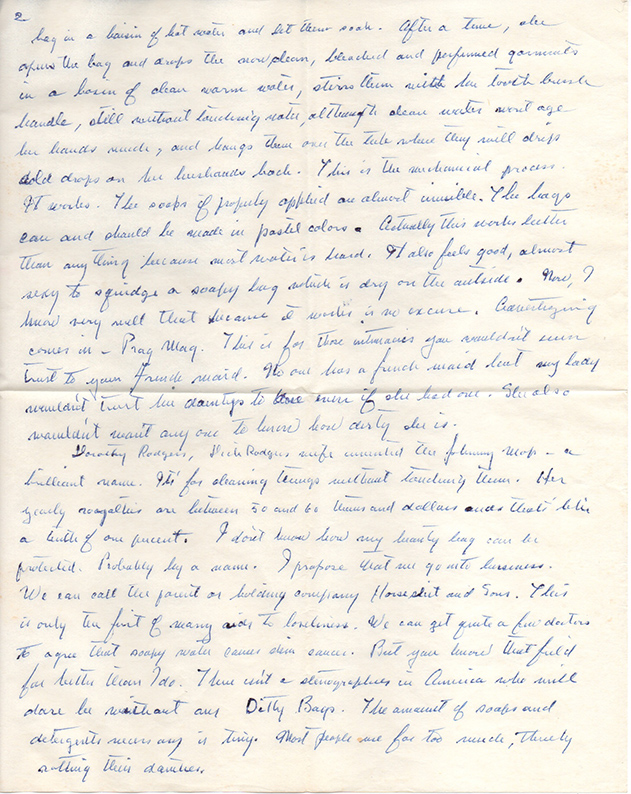 2
bag in a basin of hot water and let them soak. After a time, she
opens the bag and drops the now clean, bleached and perfumed garments
in a basin of clean warm water, stirs them with her tooth brush
handle, still without touching water, although clean water wont age
her hands much, and hangs them over the tub where they will drip
cold drops on her husbands back. This is the mechanical process.
It works. The soaps if properly applied are almost invisible. The bags
can and should be made in pastel colors. Actually this works better
than anything because most water is hard. It also feels good, almost
sexy to squidge a soapy bag which is dry on the outside. Now, I
know very well that because it works is no excuse. Advertizing
comes in — Prag Mag. This is for those intimacies you wouldn't even
trust to your French maid. No one has a french maid but my lady
wouldn't trust her dainties to one even if she had one. She also
wouldn't want any one to know how dirty she is.
Dorothy Rodgers, Dick Rodgers wife invented the Johnny Mop — a
brilliant name. It's for cleaning things without touching them. Her
yearly royalties are between 50 and 60 thousand dollars and that's like
a tenth of one percent. I don't know how my beauty bag can be
protected. Probably by a name. I propose that we go into business.
We can call the parent or holding company Horseshit and Sons. This
is only the first of many aids to loveliness. We can get quite a few doctors
to agree that soapy water causes skin cancer. But you know that field
far better than I do. There isn't a stenographer in America who will
dare be without our Ditty Bags. The amount of soaps and
detergents necessary is tiny. Most people use far too much, thereby
rotting their dainties.